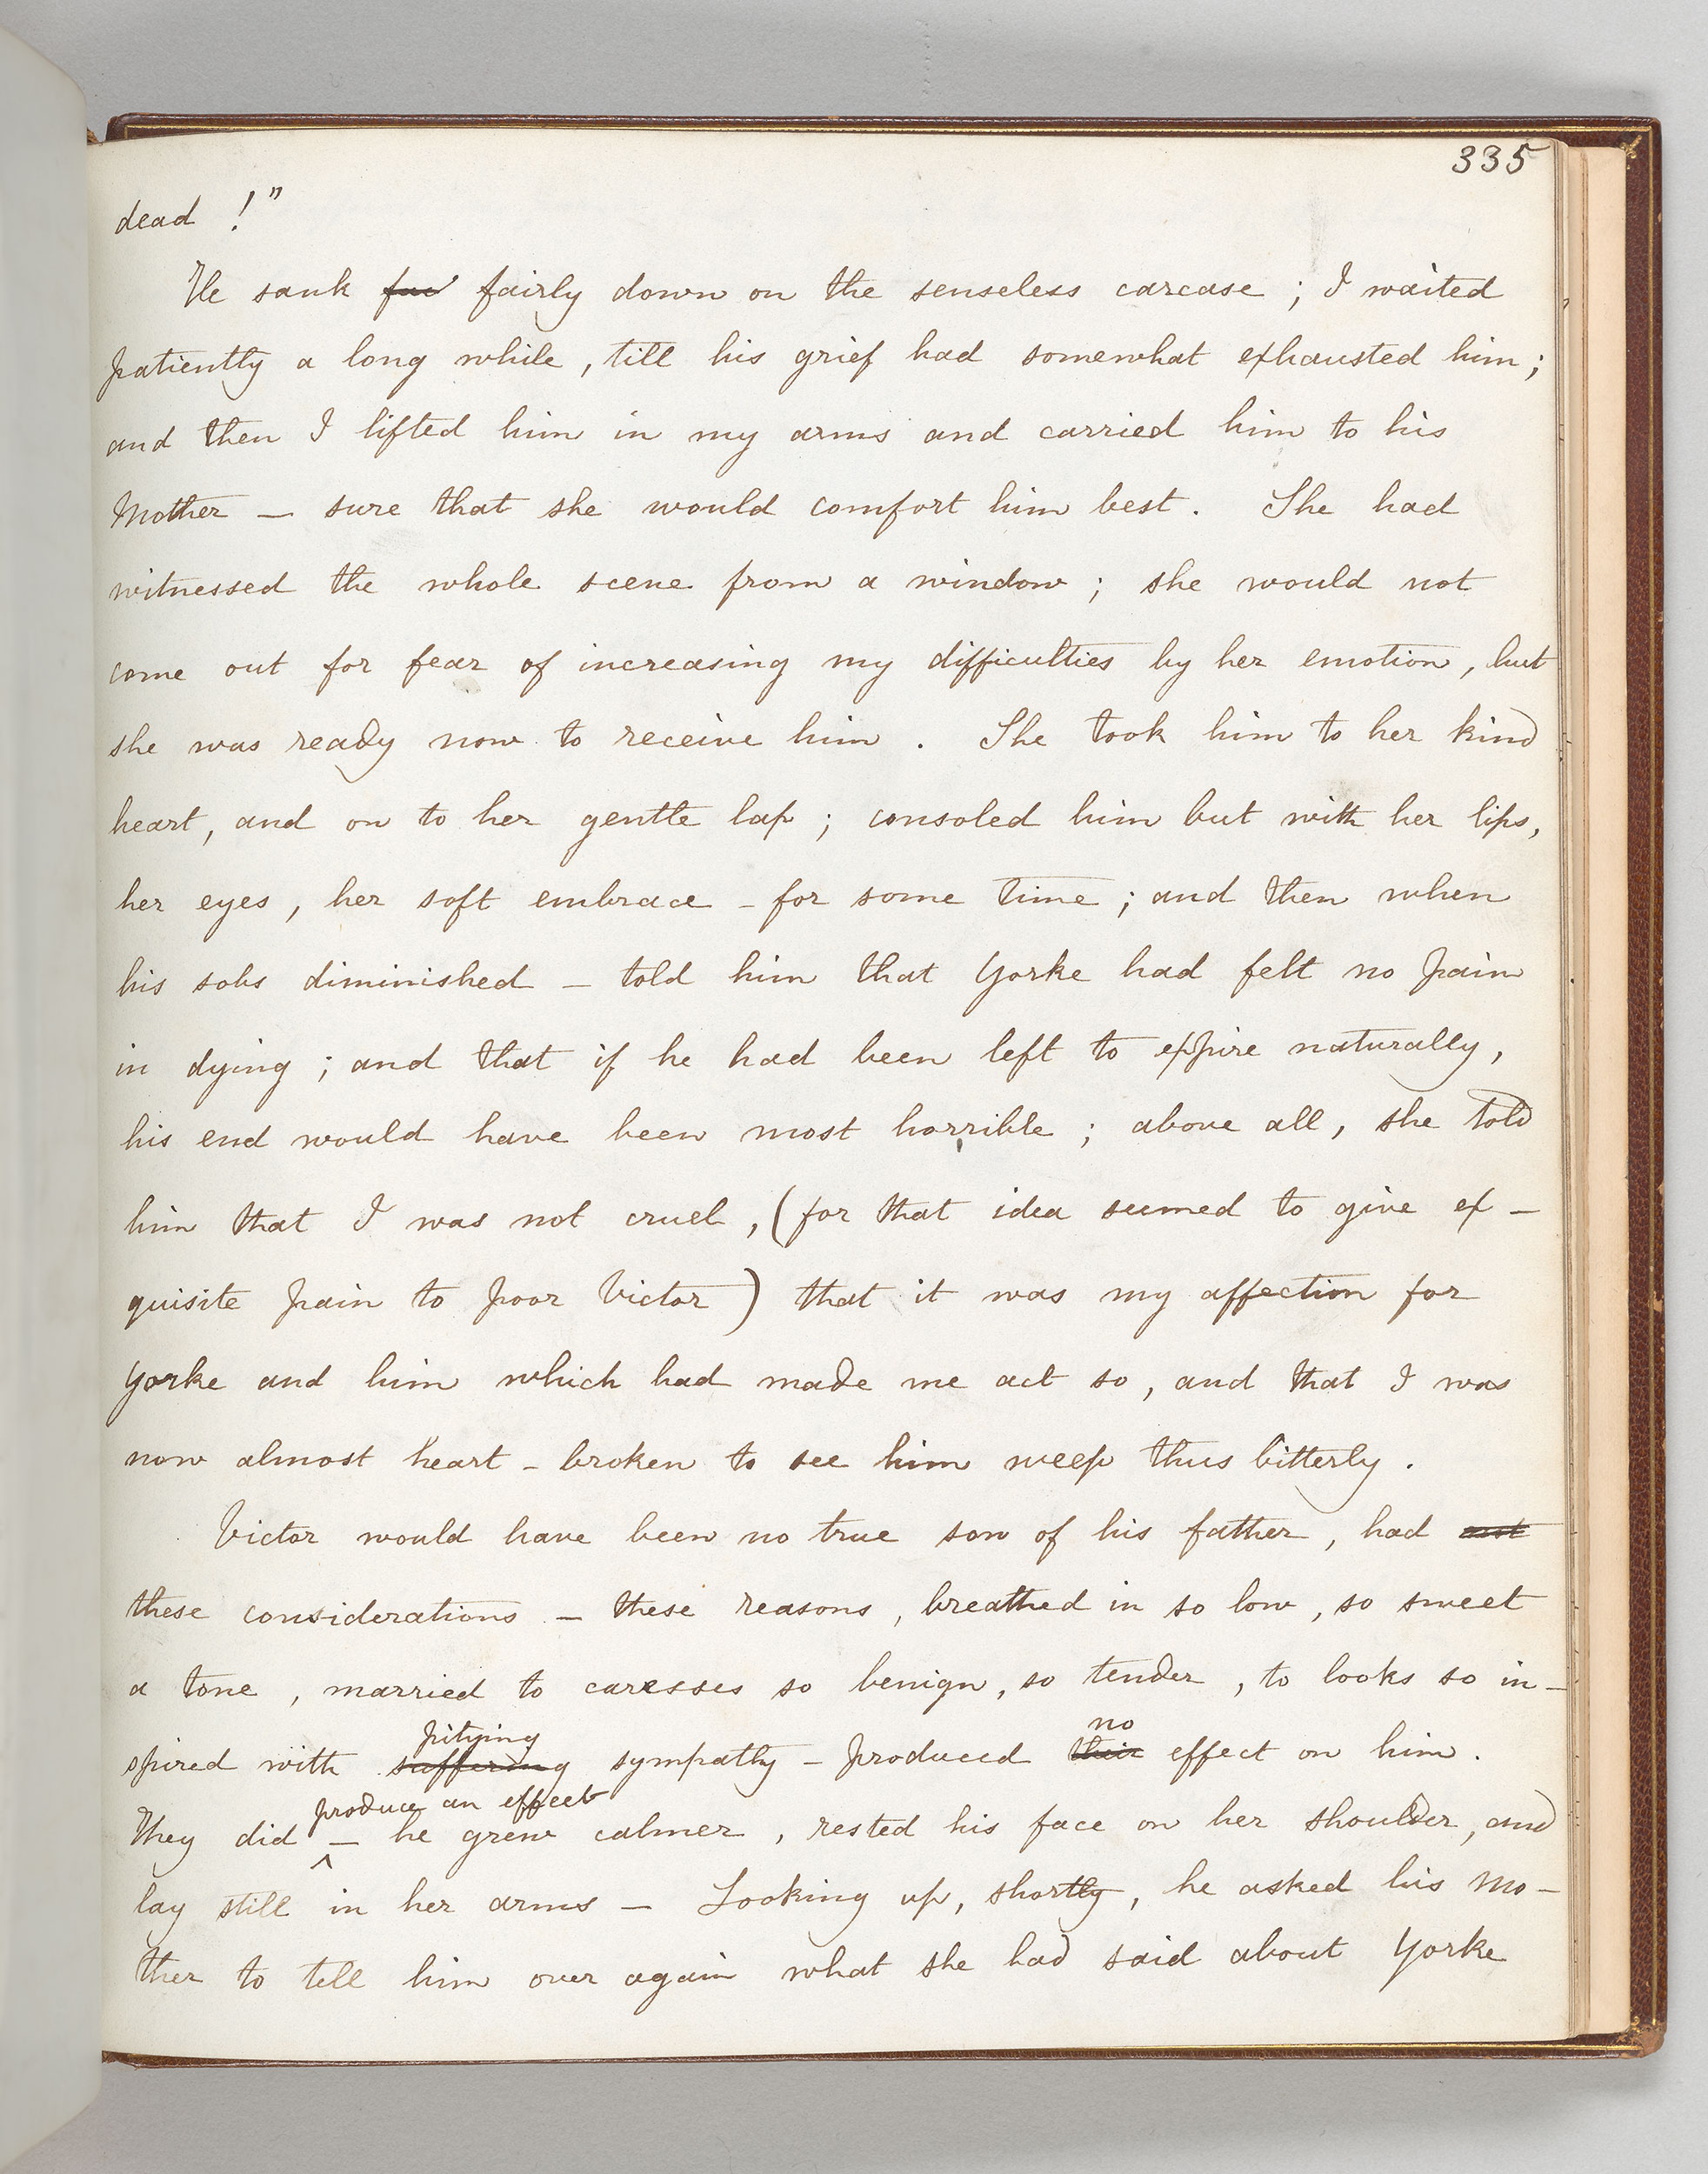 335
dead !"
He sank fairly down on the senseless carcase ; I waited
patiently a long while , till his grief had somewhat exhausted him ;
and then I lifted him in my arms and carried him to his
Mother — sure that she would comfort him best . She had
witnessed the whole scene from a window ; she would not
come out for fear of increasing my difficulties by her emotion , but
she was ready now to receive him . She took him to her kind
heart , and on to her gentle lap ; consoled him but with her lips ,
her eyes , her soft embrace - for some time ; and then when
his sobs diminished — told him that Yorke had felt no pain
in dying ; and that if he had been left to expire naturally ,
his end would have been most horrible ; above all , she told
him that I was not cruel , (for that idea seemed to give ex -
quisite pain to poor Victor ) that it was my affection for
Yorke and him which had made me act so , and that I was
now almost heart - broken to see him weep thus bitterly .
Victor would have been no true son of his father , had
these considerations — these reasons , breathed in so low , so sweet
a tone , married to caresses so benign , so tender , to looks so in -
pitying no
spired with suffering sympathy — produced their effect on him .
produce an effect
They did ^ — he grew calmer , rested his face on her shoulder , and
lay still in her arms — Looking up , shortly , he asked his Mo -
ther to tell him over again what she had said about Yorke